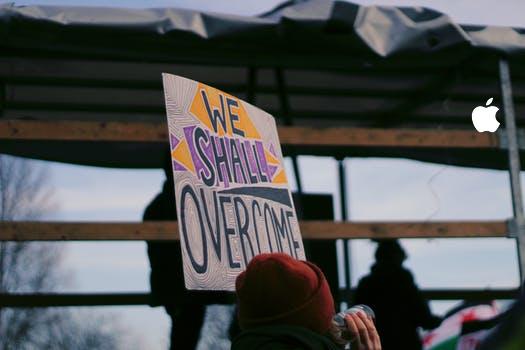 WE
SHALL
OVERCOME